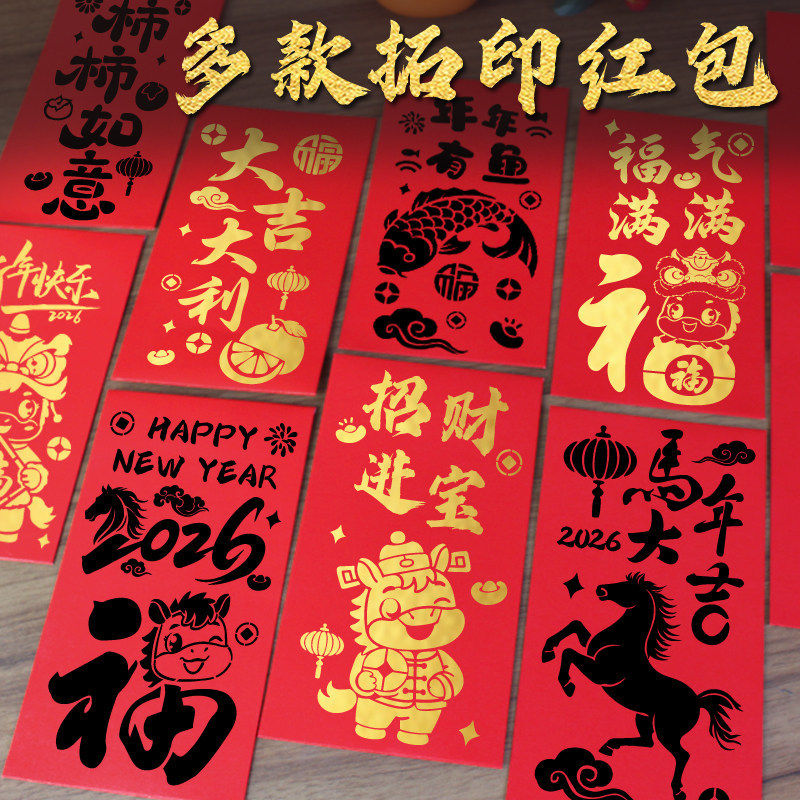 多款拓印红包
柿柿如意
大吉大利
福
年年有鱼
福
福气满满
福
福
新年快乐
2026
HAPPY
NEW YEAR
2026
福
招财进宝
馬年大吉
2026